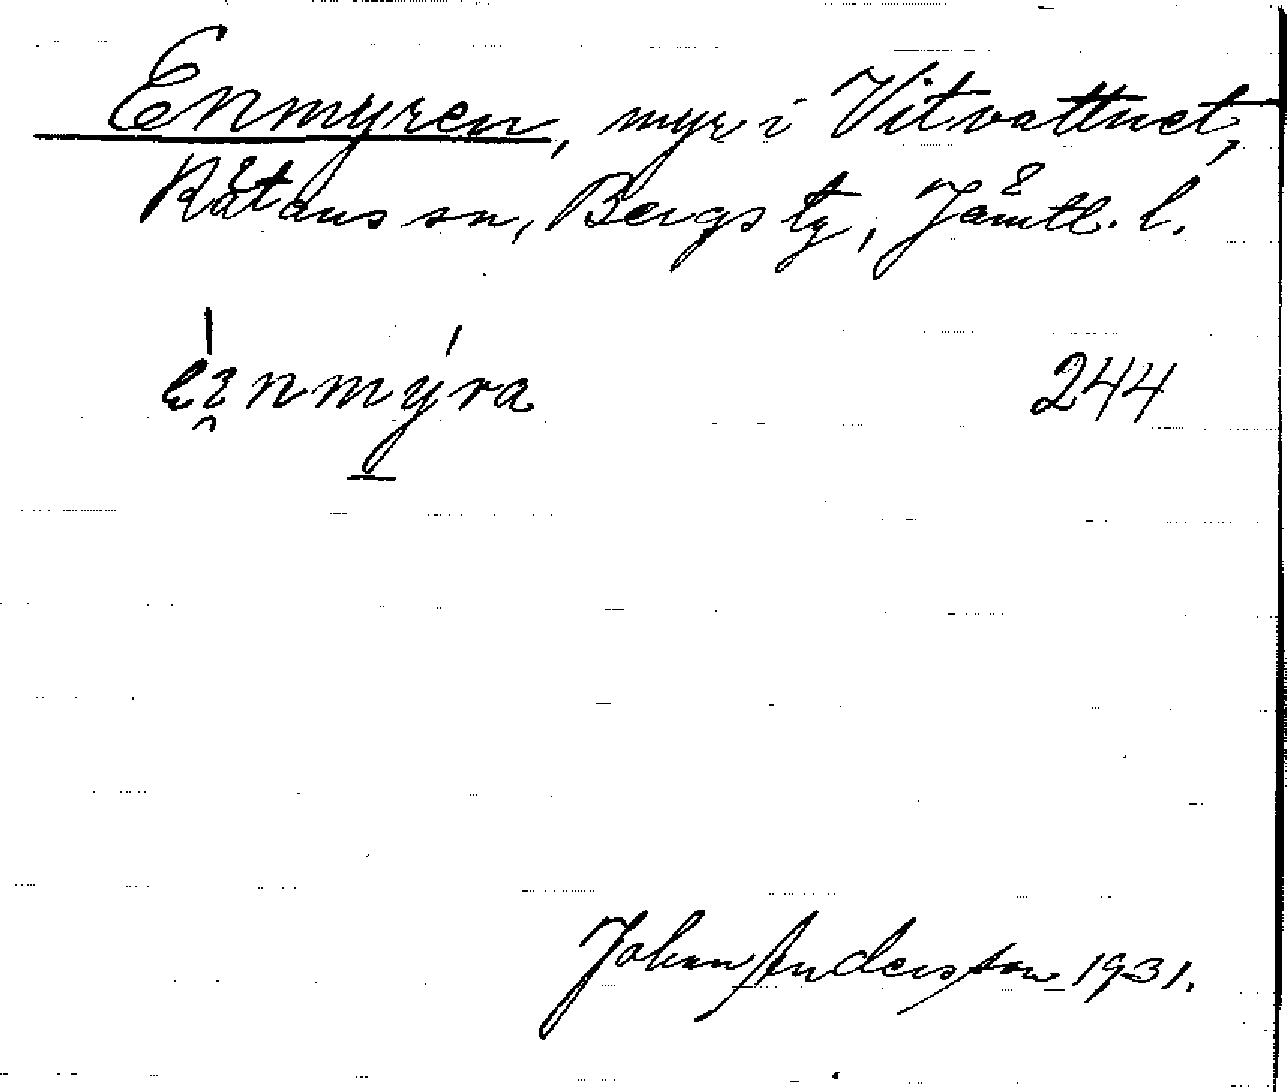 Enmyren, myr i Vitvattnet,
Rätans sn, Bergs tg, Jämtl. l.
244
Johan Anderson 1931.